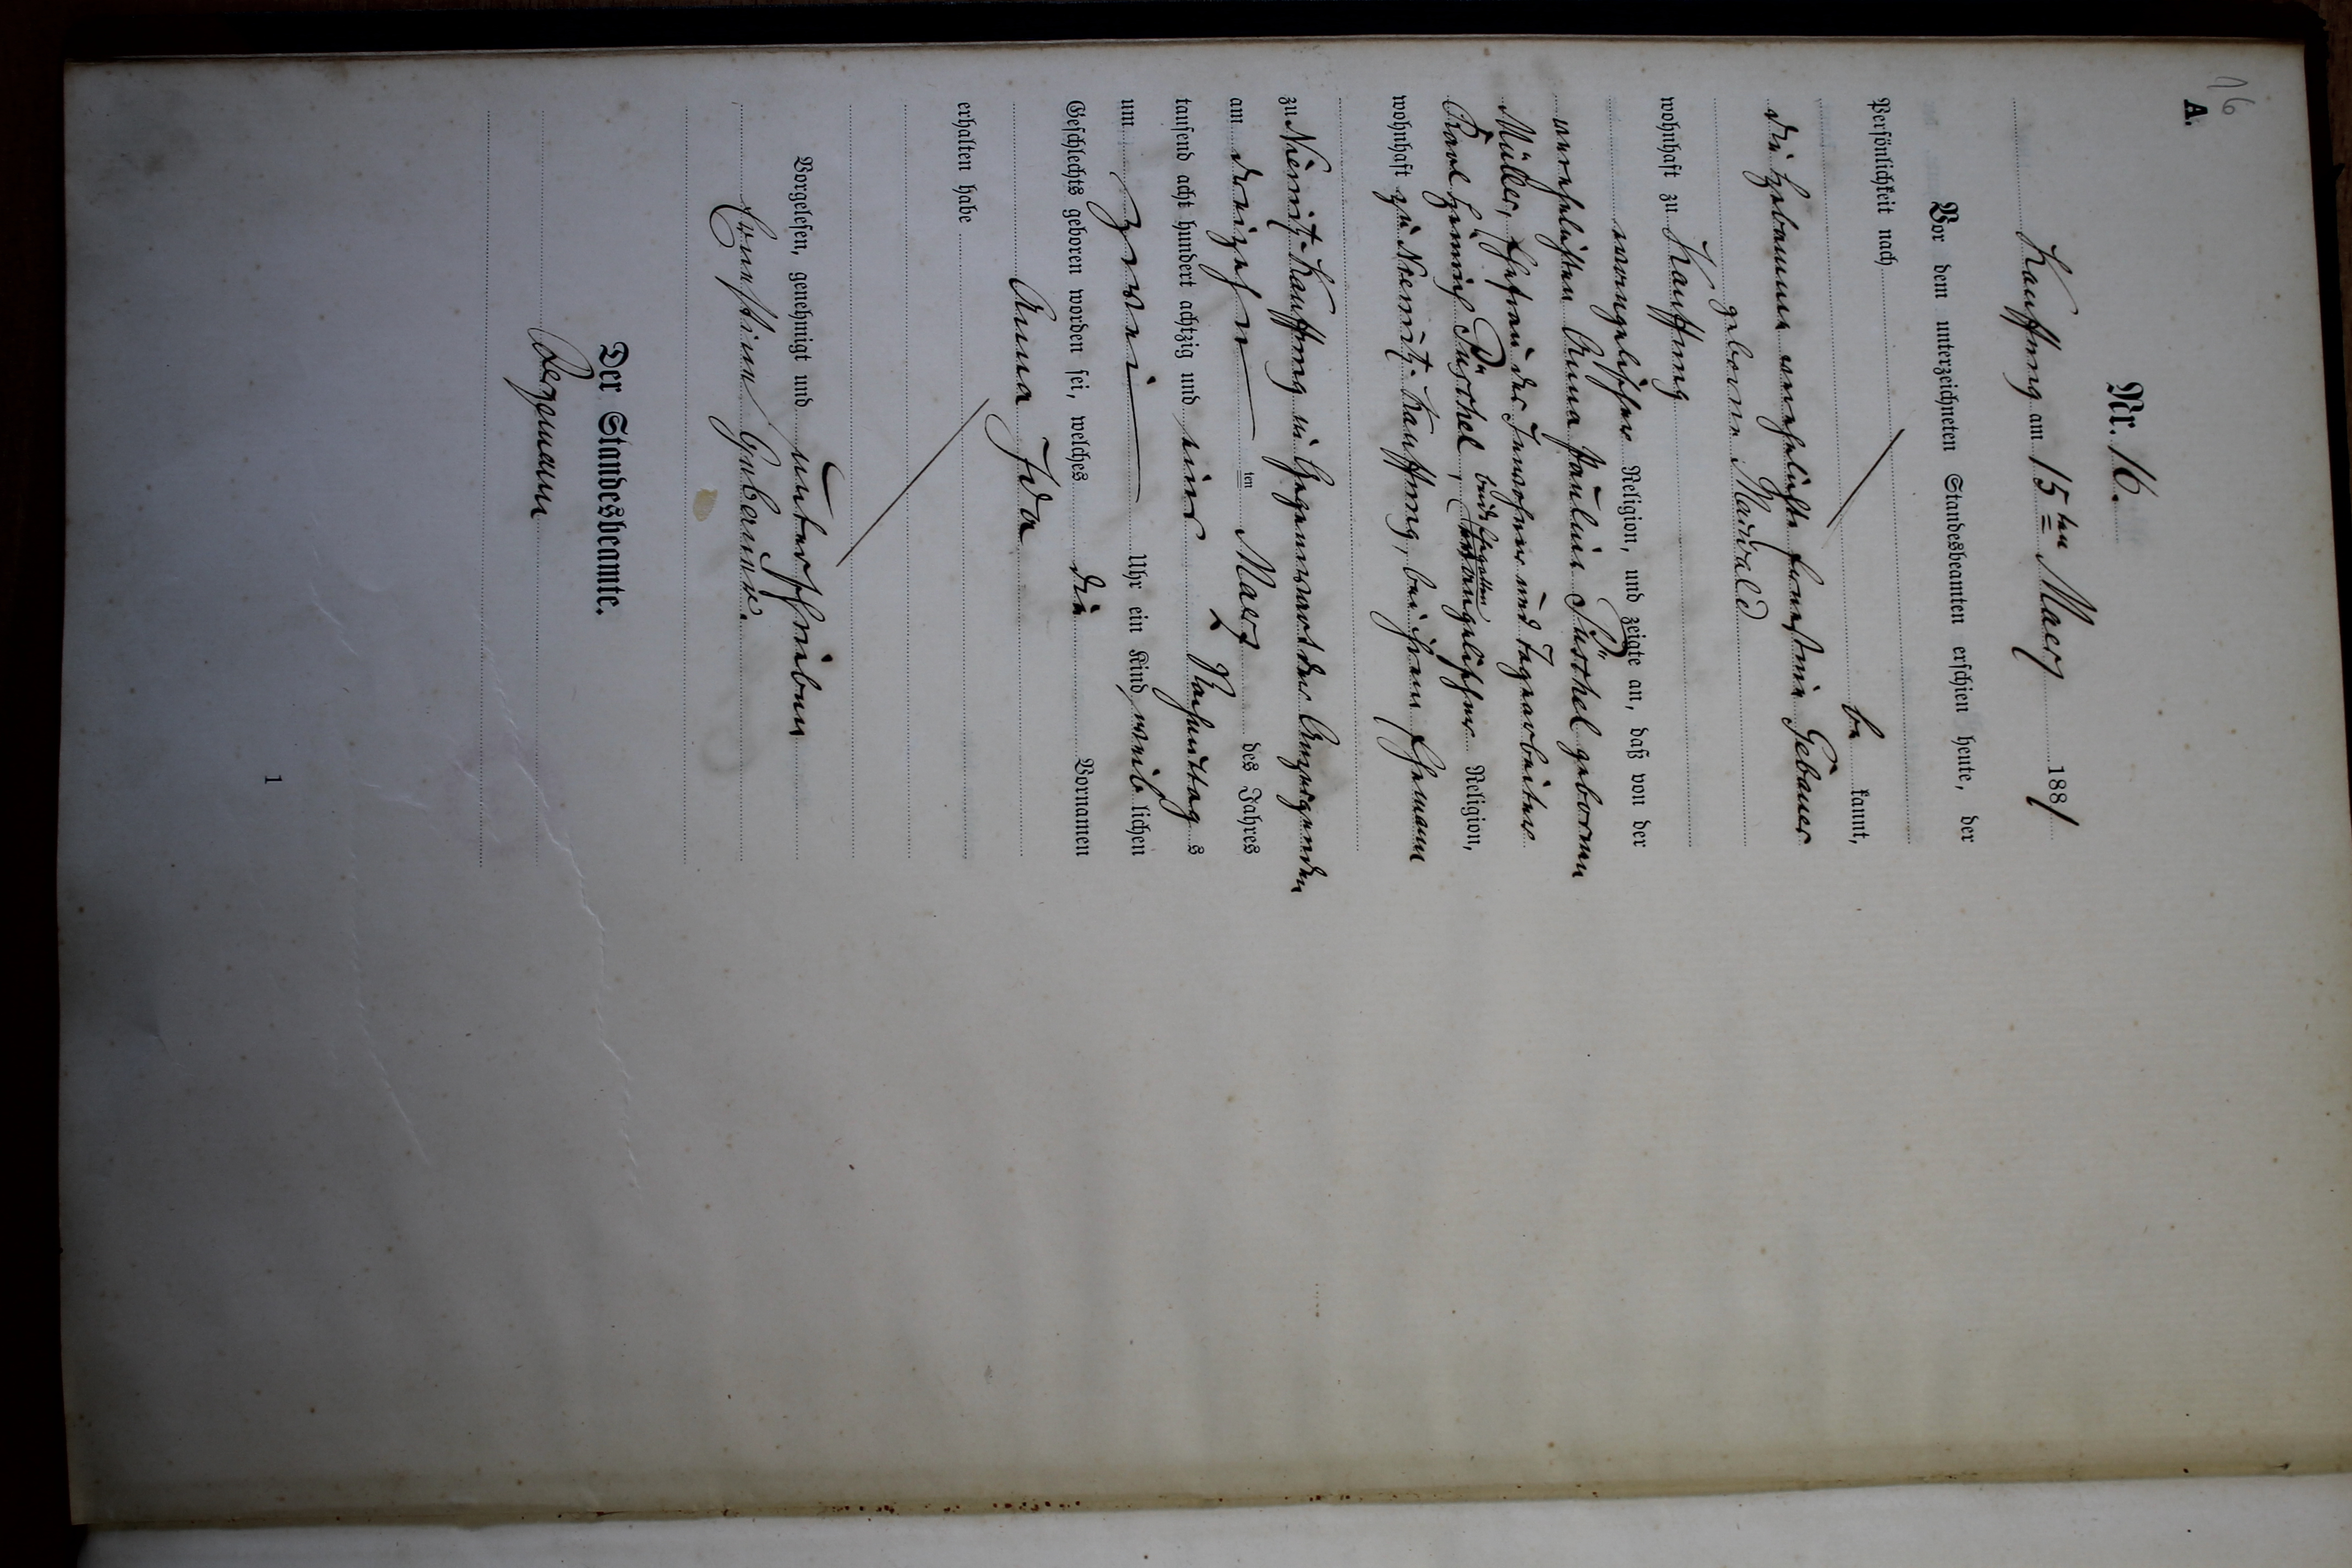 16
A.
Nr. 16.
Kauffung am 15ten Maerz 1881
Vor dem unterzeichneten Standesbeamten erschien heute, der
Persönlichkeit nach
be kannt,
die Hebamme verehelichte Ernestine Gebauer
geborne Maiwald
wohnhaft zu Kauffung
evangelischer Religion, und zeigte an, daß von der
verehelichten Anna Pauline Püschel geborenen
Müller, Ehefrau des Inwohner und Tagearbeiter
Karl Heinrich Püschel, beide evangelischer Religion,
wohnhaft zu Niemitz-Kauffung, bei ihrem Ehemann
zu Niemitz-Kauffung in Gegenwart der Anzeigenden
am dreizehn ten Maerz des Jahres
tausend acht hundert achtzig und eins Nachmittag s
um zwei Uhr ein Kind weib lichen
Geschlechts geboren worden sei, welches die Vornamen
Anna Ida
erhalten habe
Vorgelesen, genehmigt und unterschrieben
Ernstine Gebauer.
Der Standesbeamte.
Bergmann
1